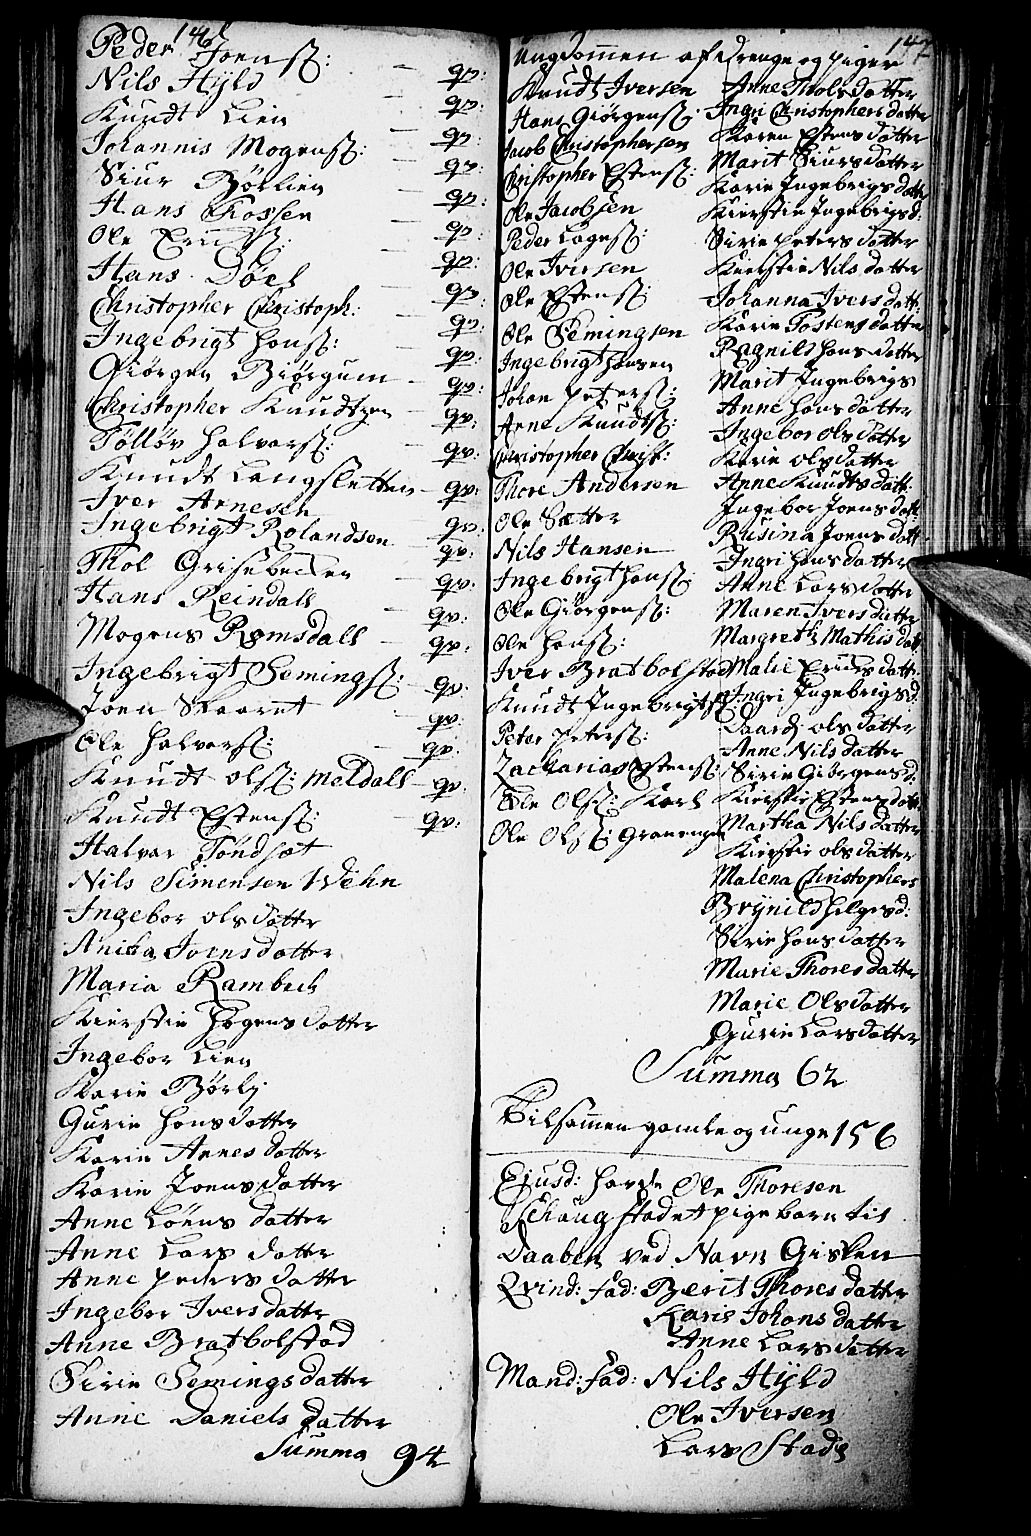 146
Peder Joens: — qv:
Nils Hÿld — qv:
Knudt Lien — qv:
Johannis Mogens: — qv:
Siur Børlien — qv:
Hans Kossen — qv:
Ole Erichs: — qv:
Hans Døel — qv:
Christopher Christoph: — qv:
Ingebrigt Hans: — qv:
Giørgen Biørgum — qv:
Christopher Knudtzen — qv:
Tølløv Halvors: — qv:
Knudt Langsletten — qv:
Iver Arnesen — qv:
Ingebrigt Rolandsen — qv:
Thol — qv:
Hans Reindall — qv:
Mogens Romsdall — qv:
Ingebrigt Semings: — qv:
Joen Skaaret — qv:
Ole Halvors: — qv:
Knudt Ols: Meldall — qv:
Knudt Estens: — qv:
Halvar Tøndset
Nils Simensen Wehn
Ingebor Olsdatter
Anika Joensdatter
Maria Rambech
Kierstie Hagensdatter
Ingebor Lien
Karie Børli
Gurie Hansdatter
Karie Arnesdatter
Karie Joensdatter
Anne Löensdatter
Anne Larsdatter
Anne Pedersdatter
Ingebor Iversdatter
Anne Bratbolstad
Sirie Semingsdatter
Anne Danielsdatter
Summa 94
147
Ungdommen af drenge og piger
Knudt Iversen Anne Tholsdatter
Hans Giørgens: Ingri Christophersdatter
Jacob Christophersen Karen Estensdatter
Christopher Estens: Marit Siursdatter
Ole Jacobsen Karie Ingebrigsdatt
Peder Lages: Kierstie Ingebrigsd:
Ole Iversen Sirie Petersdatter
Ole Estens: Kierstie Nilsdatter
Ole Semingsen Johanna Iversdatt:
Ingebrigt Hansen Karie Tostensdatter
Johan Peters: Ragnild Hansdatter
Arne Knudts: Marit Ingebrigs
Christopher Christ: Anne Hansdatter
Thore Andersen Ingebor Olsdatter
Ole Sætter Karie Olsdatter
Nils Hansen Anne Knudtsdatt:
Ingebrigt Hans: Ingebor Joensdatt
Ole Giörgens: Rusina Joensdatt
Ole Hans: Ingri Hansdatter
Iver Bratbolstad Anne Larsdatter
Knudt Ingebrigts: Maren Iversdatter
Peter Peters: Margreth Mathisdatt
Zacharias Estens: Malie Erichsdatter
Ole Ols: Kark Ingri Ingebrigsd:
Ole Ols: Granengen Olsdatter
Anne Nilsdatter
Sirie Giörgensd:
Kierstie Estensdatt:
Martha Nilsdatter
Kierstie Olsdatter
Malena Christophers
Brÿnild Helgesd:
Sirie Hansdatter
Marie Thoresdatter
Marie Olsdatter
Gurie Larsdatter
Summa 62
Tilsammen gamle og unge 156
Ejusd: hafde Ole Thoresen
Schaugstad et pigebarn til
Daaben ved Navn Gisken
Qvind: fad: Berit Thoresdatter
Karie Johansdatter
Anne Larsdatter
Mand: fad: Nils Hÿld
Ole Iversen
Lars Stads